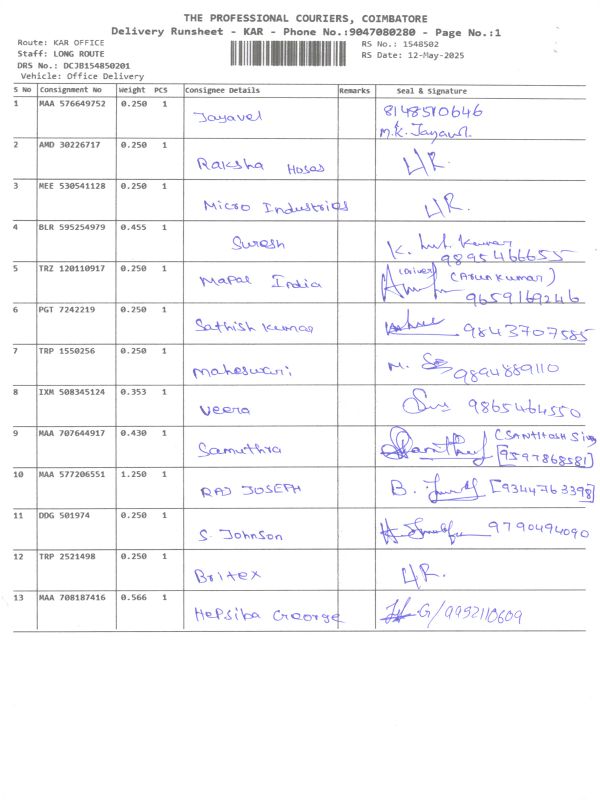 THE PROFESSIONAL COURIERS, COIMBATORE
Delivery Runsheet - KAR - Phone No.:9047080280 - Page No.:1
Route: KAR OFFICE
RS No.: 1548502
Staff: LONG ROUTE
RS Date: 12-May-2025
DRS No.: DCJB154850201
Vehicle: Office Delivery
S No Consignment No Weight PCS Consignee Details Remarks Seal & Signature
1 MAA 576649752 0.250 1 Jayavel 8148510646
M.K. Jayavel
2 AMD 30226717 0.250 1 Raksha Hosas
3 MEE 530541128 0.250 1 Micro Industries
4 BLR 595254979 0.455 1 Suresh K. Kumar
9895466655
5 TRZ 120110917 0.250 1 Mapal India (Driver) (Arunkumar)
9659169246
6 PGT 7242219 0.250 1 Sathish Kumar 9843707585
7 TRP 1550256 0.250 1 Maheswari M. 9894889110
8 IXM 508345124 0.353 1 Veera 9865464550
9 MAA 707644917 0.430 1 Samuthra (SANTHOSH
[9597868581]
10 MAA 577206551 1.250 1 RAJ JOSEPH B. [9344763398]
11 DDG 501974 0.250 1 S. Johnson 9790494090
12 TRP 2521498 0.250 1 Britex
13 MAA 708187416 0.566 1 Hepsiba George G/9952110609